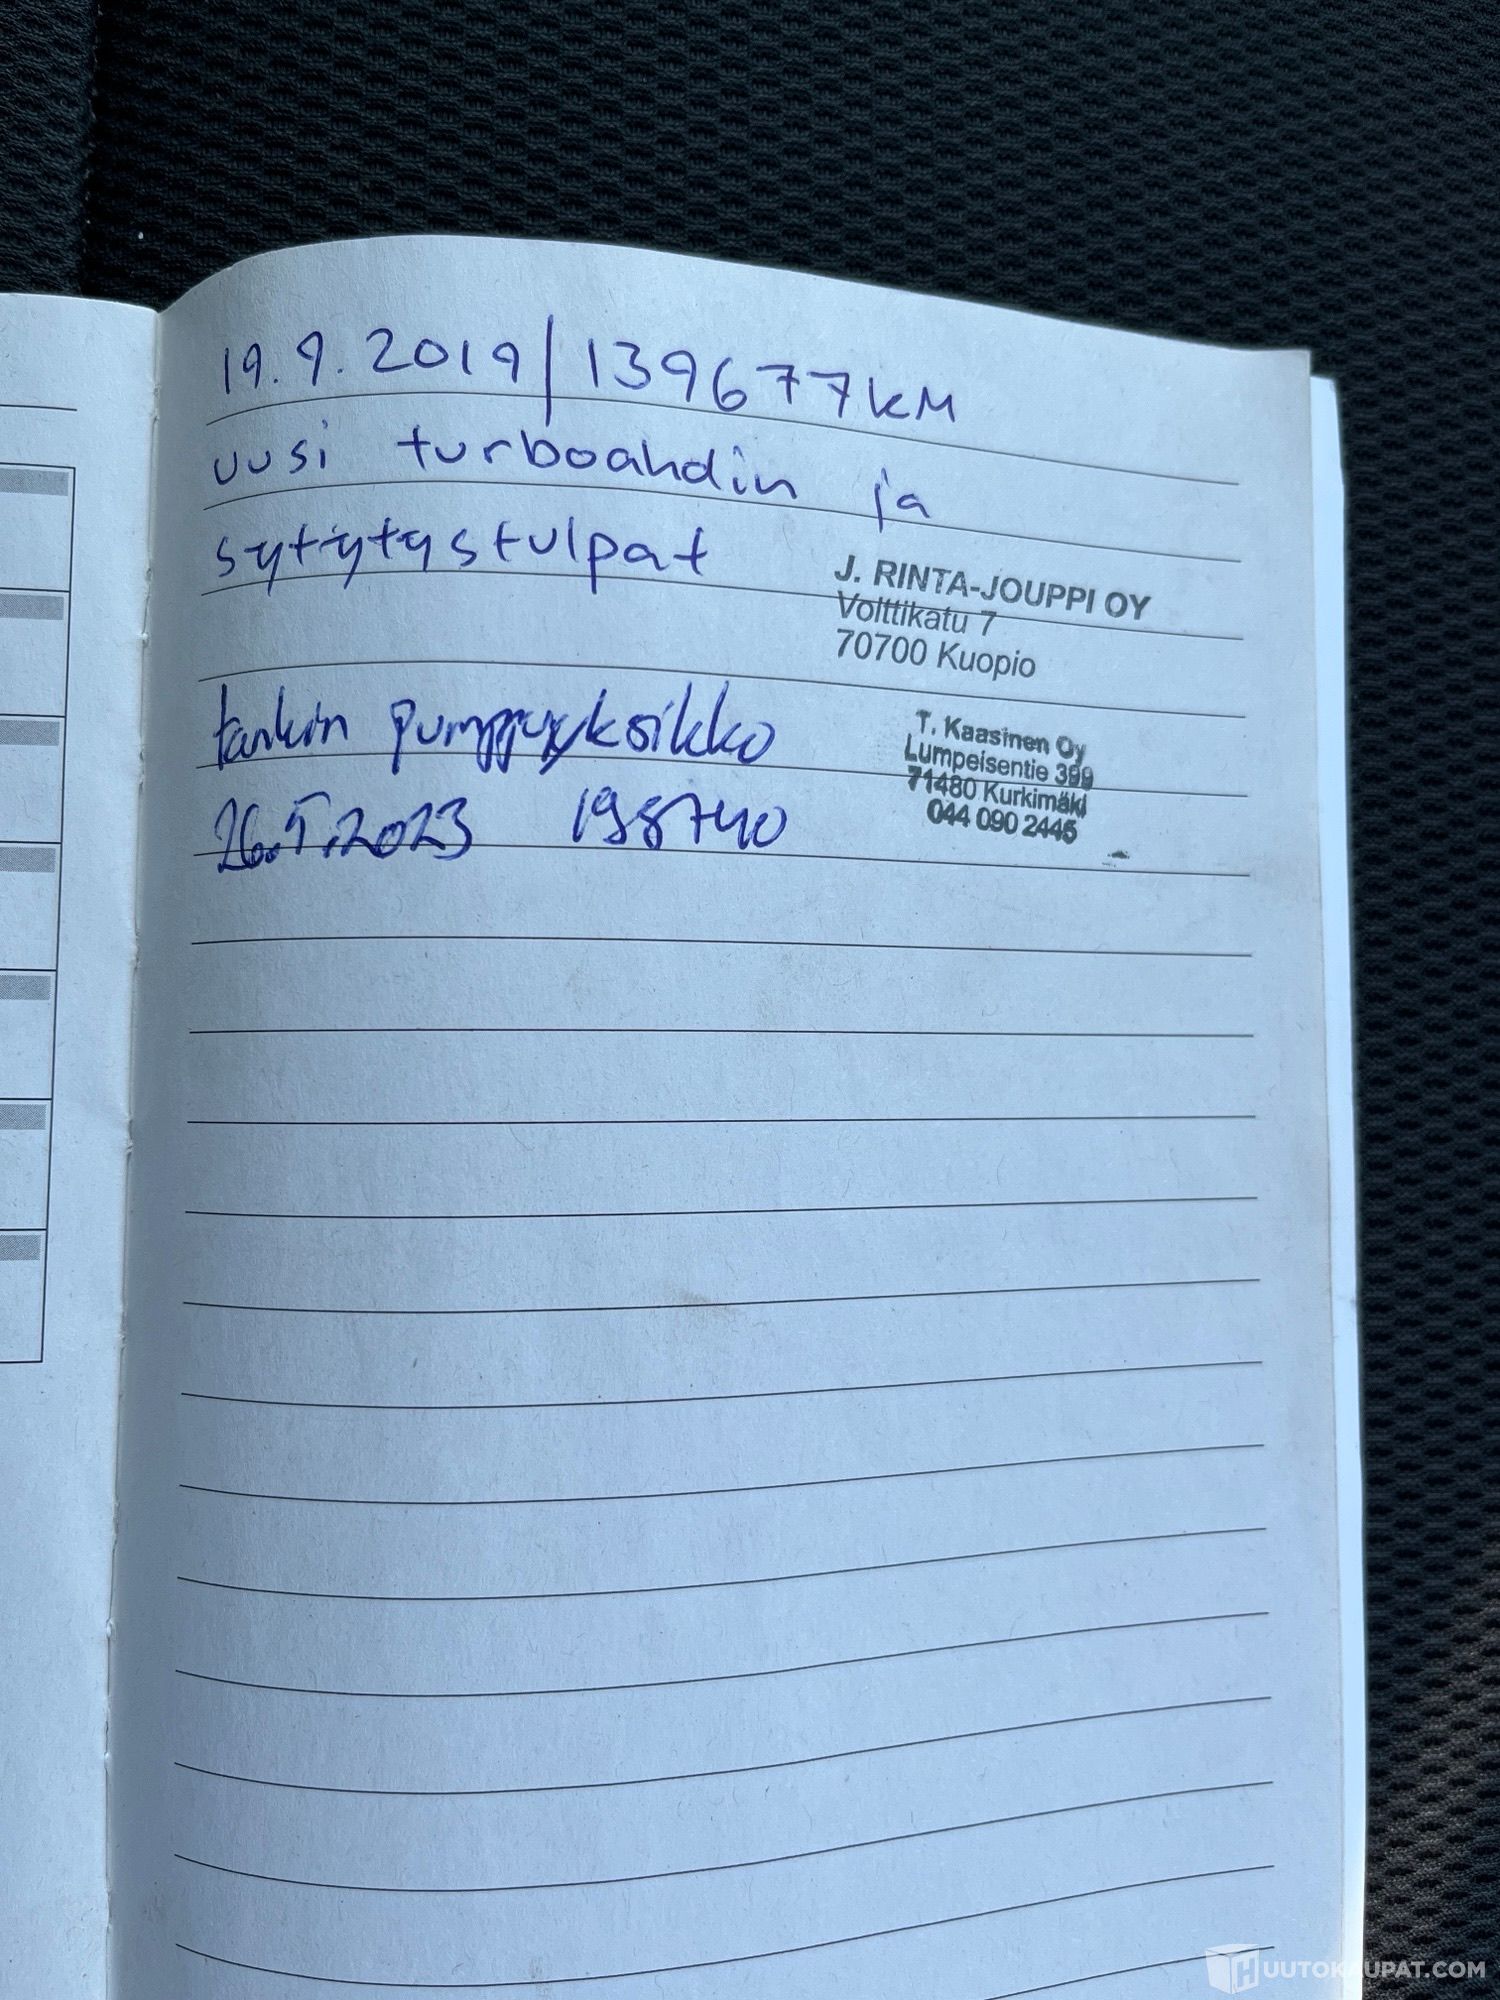 19.9.2019 / 139677 km
uusi turboahdin ja
sytytystulpat
J. RINTA-JOUPPI OY
Volttikatu 7
70700 Kuopio
tankin pumppuyksikkö
26.5.2023 198740
T. Kaasinen Oy
Lumpeisentie 399
71480 Kurkimäki
044 090 2445
UUTOKAUPAT.COM